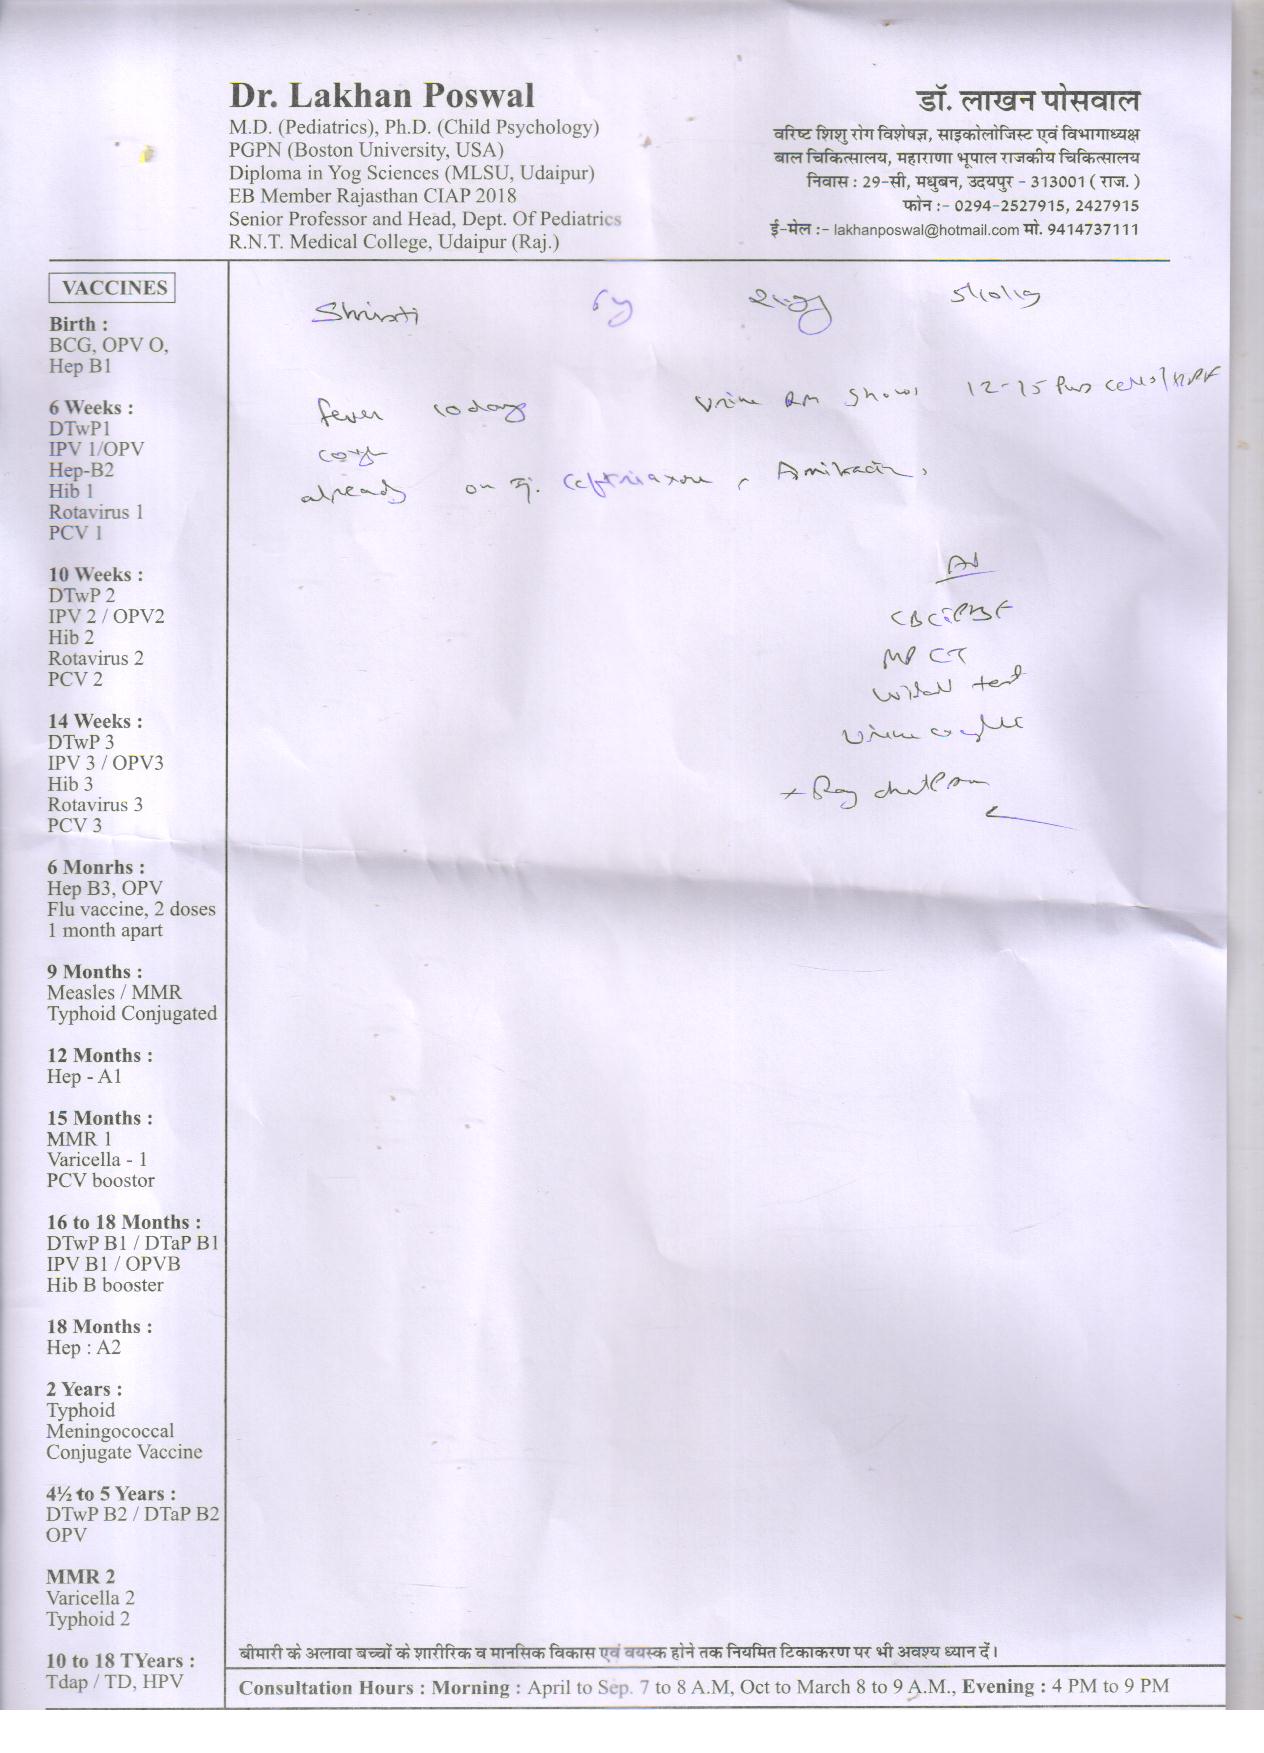 Dr. Lakhan Poswal
M.D. (Pediatrics), Ph.D. (Child Psychology)
PGPN (Boston University, USA)
Diploma in Yog Sciences (MLSU, Udaipur)
EB Member Rajasthan CIAP 2018
Senior Professor and Head, Dept. Of Pediatrics
R.N.T. Medical College, Udaipur (Raj.)
डॉ. लाखन पोसवाल
वरिष्ट शिशु रोग विशेषज्ञ, साइकोलोजिस्ट एवं विभागाध्यक्ष
बाल चिकित्सालय, महाराणा भूपाल राजकीय चिकित्सालय
निवास : 29-सी, मधुबन, उदयपुर - 313001 ( राज. )
फोन :- 0294-2527915, 2427915
ई-मेल :- lakhanposwal@hotmail.com मो. 9414737111
VACCINES
Birth :
BCG, OPV O,
Hep B1
6 Weeks :
DTwP1
IPV 1/OPV
Hep-B2
Hib 1
Rotavirus 1
PCV 1
10 Weeks :
DTwP 2
IPV 2 / OPV2
Hib 2
Rotavirus 2
PCV 2
14 Weeks :
DTwP 3
IPV 3 / OPV3
Hib 3
Rotavirus 3
PCV 3
6 Monrhs :
Hep B3, OPV
Flu vaccine, 2 doses
1 month apart
9 Months :
Measles / MMR
Typhoid Conjugated
12 Months :
Hep - A1
15 Months :
MMR 1
Varicella - 1
PCV boostor
16 to 18 Months :
DTwP B1 / DTaP B1
IPV B1 / OPVB
Hib B booster
18 Months :
Hep : A2
2 Years :
Typhoid
Meningococcal
Conjugate Vaccine
4½ to 5 Years :
DTwP B2 / DTaP B2
OPV
MMR 2
Varicella 2
Typhoid 2
10 to 18 TYears :
Tdap / TD, HPV
Shristi 6y 5/10/19
fever 10 days Urine RM shows 12-15 Pus cells/HPF
cough
already on Inj. Ceftriaxone, Amikacin,
Ad
CBC, PBF
MP CT
Widal test
Urine c
X Ray chest
बीमारी के अलावा बच्चों के शारीरिक व मानसिक विकास एवं वयस्क होने तक नियमित टिकाकरण पर भी अवश्य ध्यान दें।
Consultation Hours : Morning : April to Sep. 7 to 8 A.M, Oct to March 8 to 9 A.M., Evening : 4 PM to 9 PM